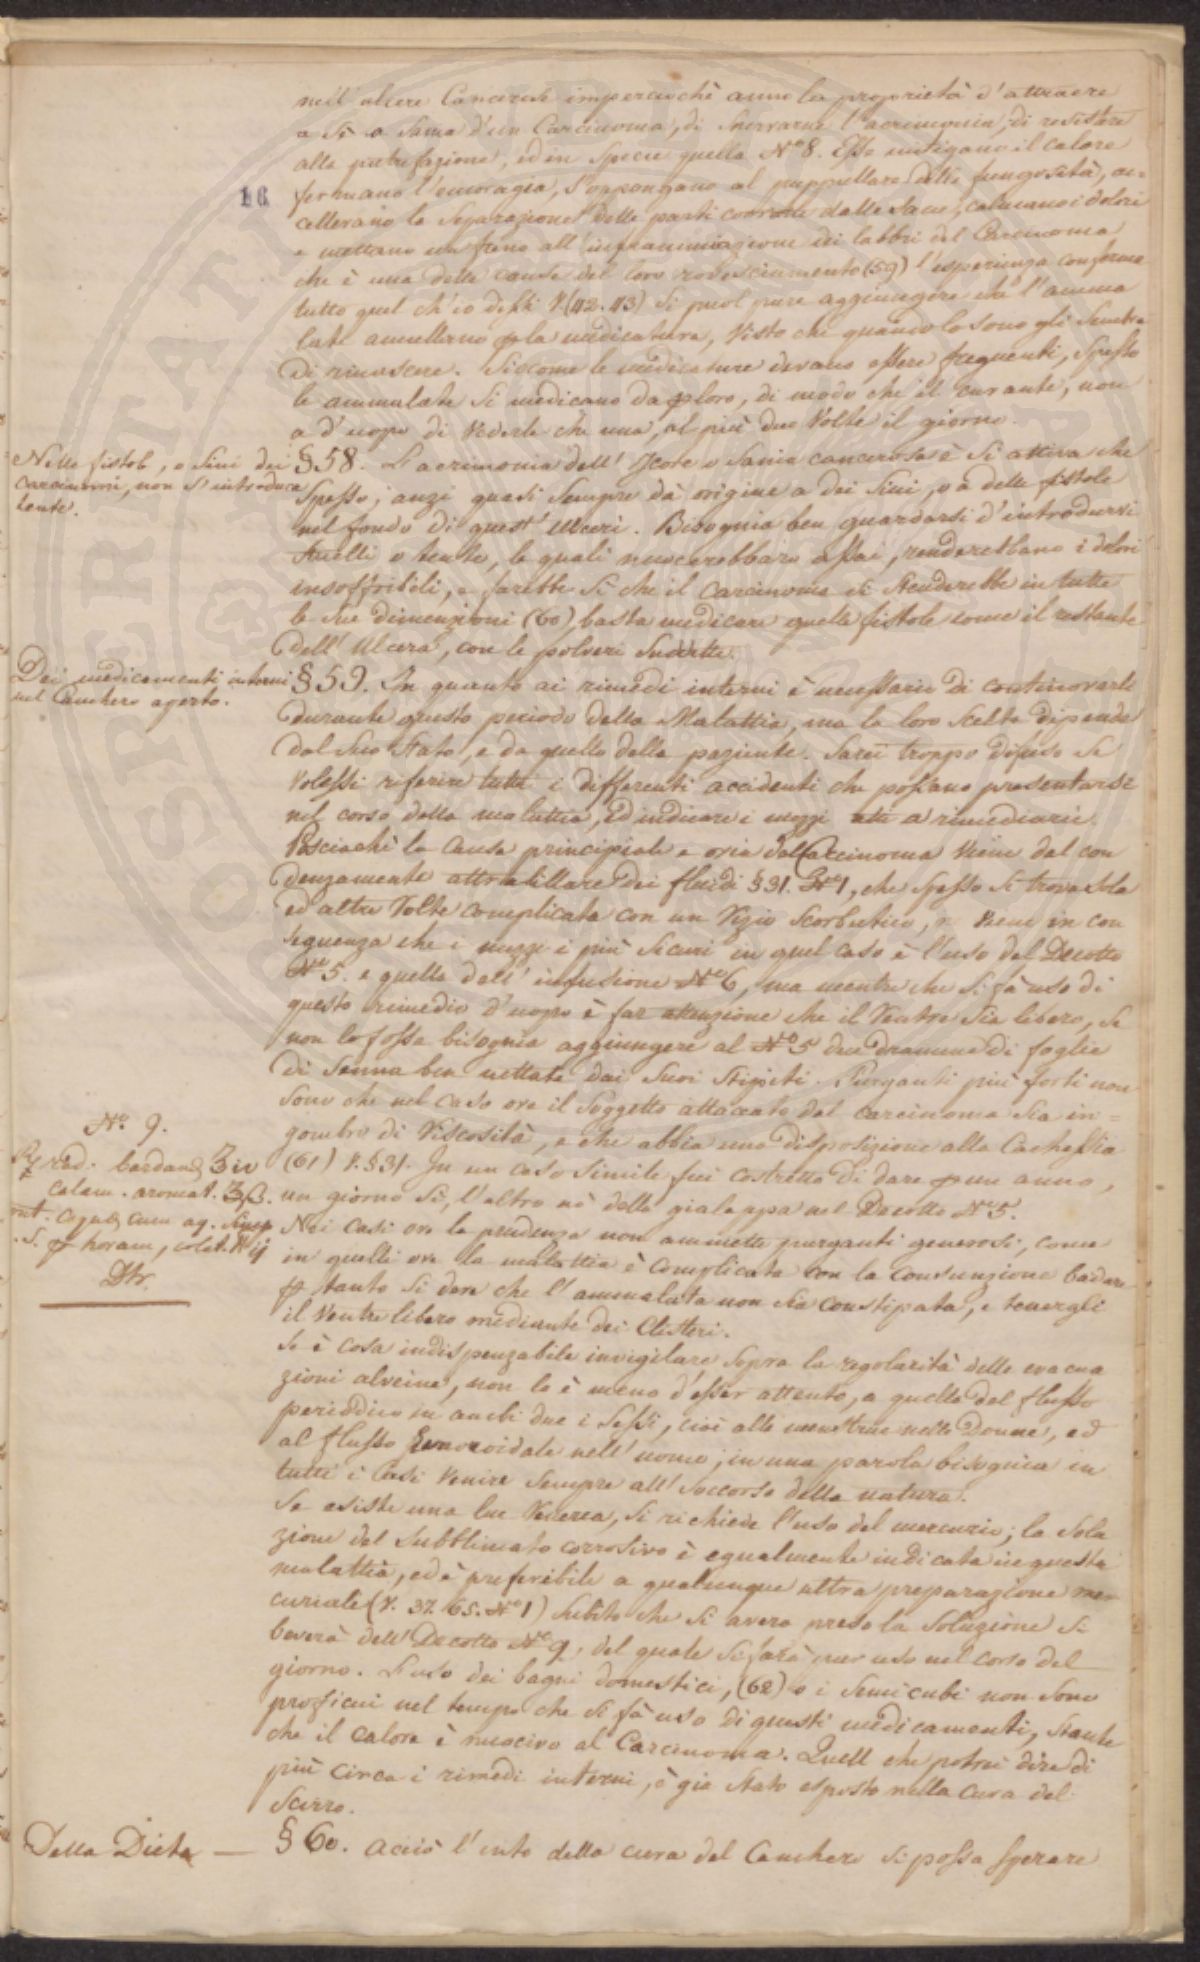 16
nell' ulcere Cancerose imperciochè anno la proprietà d'attraere
a Sè a Sania d'un Carcinoma, di Snervarne l'acrimonia, di resistere
alla putrefazione, ed in Specie quella Nº 8. Esse mitigano il calore
fermano l'emoragia, S'oppongano al puppullare delle fungosità, ac=
cellerano la Separazione delle parti corrotte dalle Sane, calmano i dolori
e mettano un freno all' infiammazione dei labbri del Carcinoma
che è una delle cause del loro rovesciamento (59) l'esperienza conferma
tutto quel ch'io dissi V. (112. 113) Si puol pure aggiungere che l'amma
late la medicatura, Visto che quando lo sono gli
Di rinascere. Siccome le medicature devano essere frequenti, Spesso
le ammalate Si medicano da loro, di modo che il curante, non
a d'uopo di Vederle che una, al più due Volte il giorno.
Nelle fistole, o Sini dei
carcinomi, non S'introduca
tente.
§ 58. L'acrimonia dell' Icore o Sania cancerosa è Si attiva che
Spesso, anzi quasi Sempre dà origine a dei Sini, o a delle fistole
nel fondo di quest' Ulceri. Bisognia ben guardarsi d'introdurvi
Stuelli o tente, le quali nuocerebbaro assai, renderebbano i dolori
insoffribili, e farebbe Si che il Carcinoma Si Stenderebbe in tutte
le Sue dimenzioni (60), basta medicare quelle fistole come il restante
dell' Ulcera, con le polveri Sudette.
Dei medicamenti interni
nel Canchero aperto.
§ 59. In quanto ai rimedi interni è necessario di continovarli
durante questo periodo della Malattia, ma la loro Scelta dipende
dal Suo Stato, e da quello della paziente. Sarei troppo difuso Se
Volessi riferire tutti i differenti accidenti che possano presentarsi
nel corso della malattia, ed indicare i mezzi atti a rimediarvi.
Posciachè la Causa principiale e oria del Carcinoma Viene dal con
denzamento attrabillare Dei fluidi § 31. Nº 1, che Spesso Si trova Sola
ed altre Volte complicata con un Vizio Scorbutico, ne Viene in con
seguenza che i mezzi i più Sicuri in quel caso è l'uso del Decotto
Nº 5. e quello dell' infusione Nº 6, ma mentre che Si fà uso di
questo rimedio d'uopo è far attenzione che il Ventre Sia libero, Se
non lo fosse bisognia aggiungere al Nº 5 due dramme di foglie
di Senna ben nettate dai Suoi Stipiti. Purganti più forti non
Sono che nel Caso ove il Soggetto attaccato dal carcinoma Sia in=
gombro di Viscosità, e che abbia una disposizione alla Cachessia
(61) V. § 31. In un caso Simile fui costretto di dare un anno,
un giorno Si, l'altro nò della gialappa nel Decotto Nº 5.
Nº. 9.
rad. bardanæ ℥ iv
calam. aromat. ℥ ß.
Coqu cum aq.
horam, colat. ℔ ij
Dtr.
Nei casi ove la prudenza non ammette purganti generosi, come
in quelli ove la malattia è Complicata con la Consunzione badare
tanto Si deve che l'ammalata non Sia Constipata, e tenergli
il Ventre libero mediante dei Clisteri.
Se è cosa indispenzabile invigilare Sopra la regolarità delle evacua
zioni alveine, non lo è meno d'esser attento, a quella del flusso
periodico in ambi due i Sessi, cioè alle menstrue nelle Donne, ed
al flusso Emoroidale nell' uomo; in una parola bisognia in
tutti i Casi Venire Sempre all' Soccorso della natura.
Se esiste una lue Venerea, Si richiede l'uso del mercurio; la Solu
zione del Subblimato corrosivo è egualmente indicata in questa
malattia, ed è preferibile a qualunque altra preparazione mer
curiale (V. 37. 65. Nº 1) Subito che Si avera preso la Soluzione Si
beverà dell' Decotto Nº 9, del quale Si farà pur uso nel Corso del
giorno. L'uso dei bagni domestici, (62) o i Semicubi non Sono
proficui nel tempo che Si fà uso di questi medicamenti, Stante
che il Calore è nuocivo al Carcinoma. Quell che potrei dire di
più Circa i rimedi interni, è gia Stato esposto nella Cura del
Scirro.
Della Dieta —
§ 60. Acciò l'ento della cura del Canchero Si possa Sperare